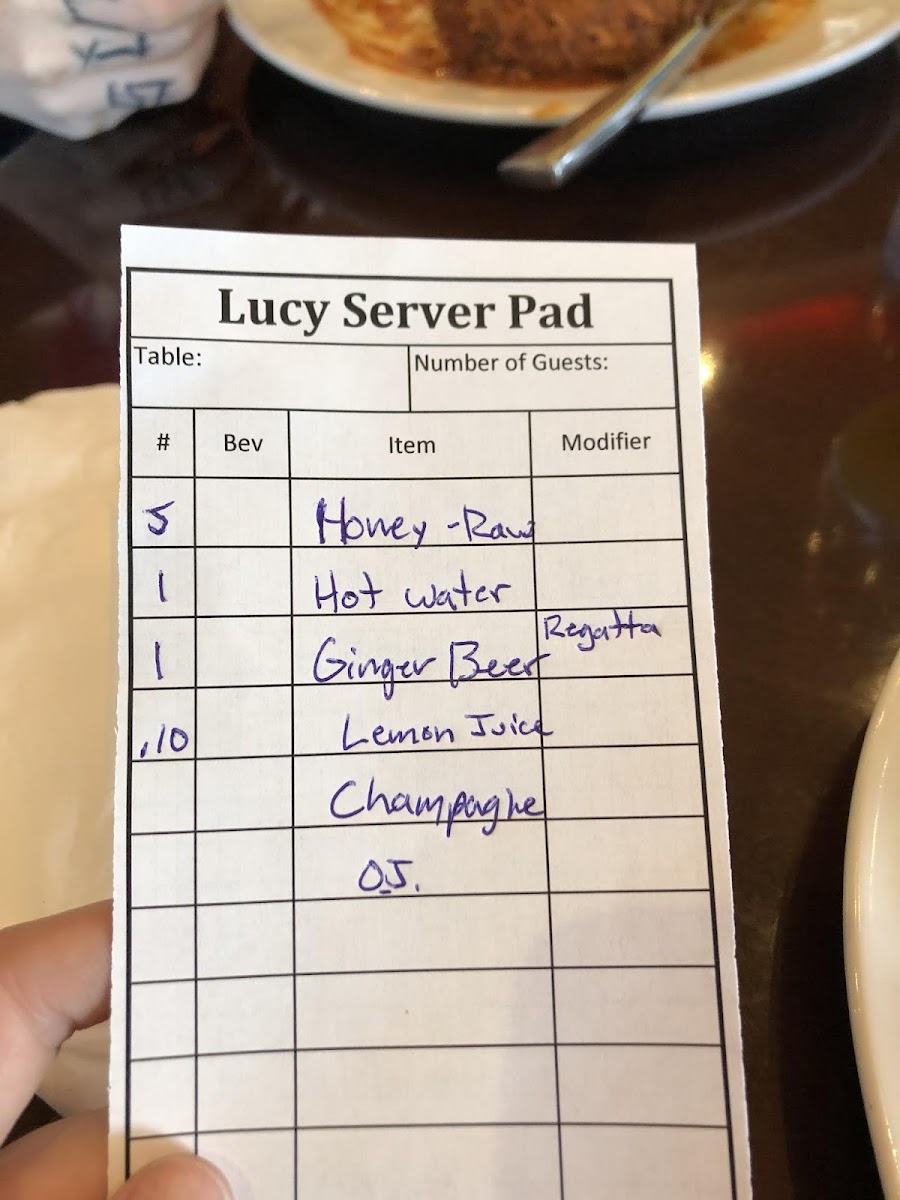 Lucy Server Pad
Table: Number of Guests:
# Bev Item Modifier
5 Honey - Raw
1 Hot water
1 Ginger Beer Regatta
.10 Lemon Juice
Champagne
O.J.